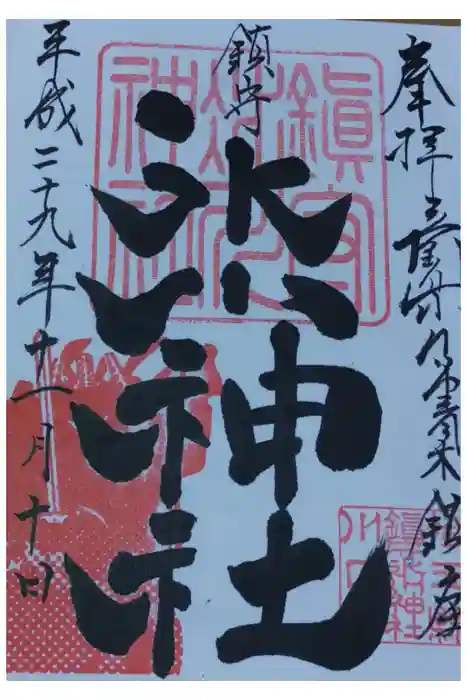 奉拝 青木鎮座
鎮守
氷川神社
平成二十九年十一月十日
鎮守
氷川
神社